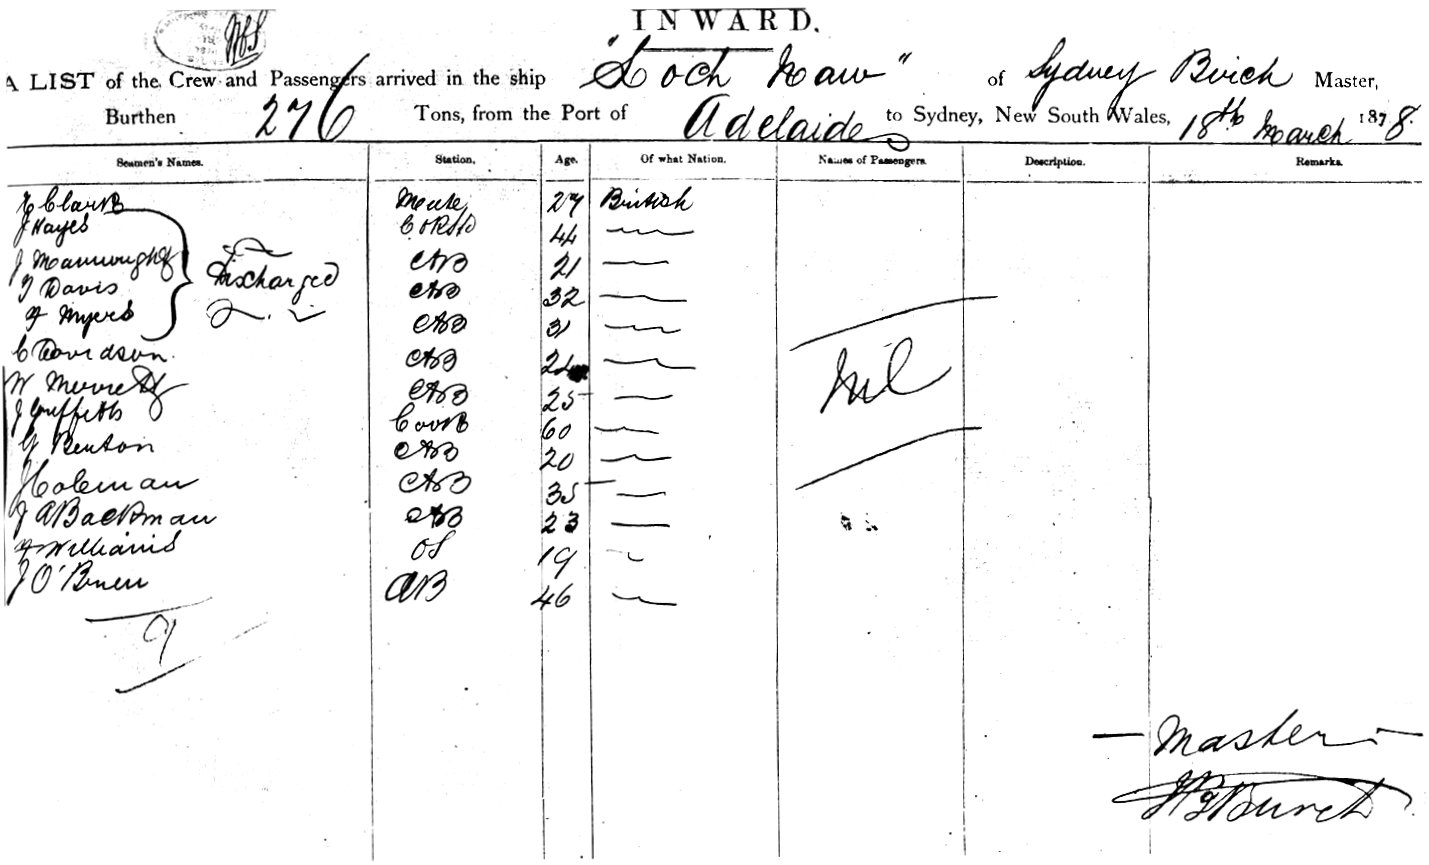 INWARD.
A LIST of the Crew and Passengers arrived in the ship "Loch Naw" of Sydney Burch Master,
Burthen 276 Tons, from the Port of Adelaide to Sydney, New South Wales, 18th March 1878.
Seamen's Names. Station, Age. Of what Nation. Names of Passengers. Description. Remarks.
Clark Mate 27 British
J Hayes 44
J 21
Davis AB 32
Discharged
F Myers AB 31
C Davidson AB
W AB 25
J Griffiths Cook 60
G Benton AB 20
Nil
J Coleman AB 35
J A Backman AB 23
F Williams OS 19
J O'Brien AB 46
9
Master
Burch